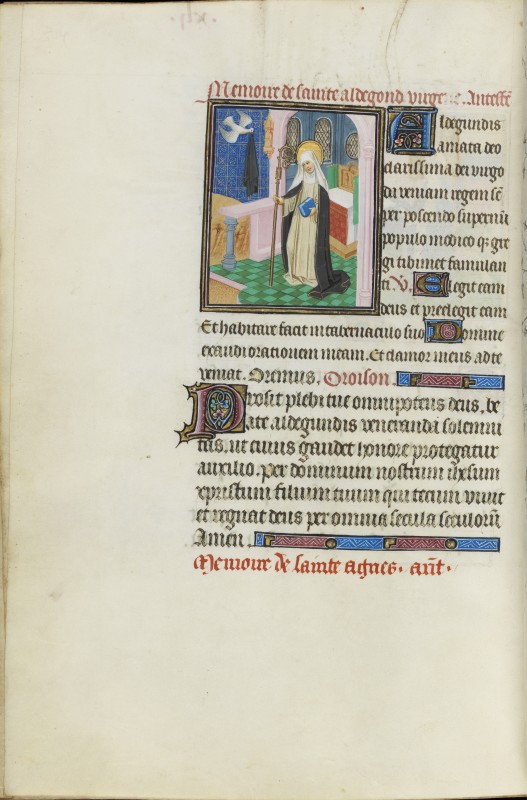 Memoire de sainte aldegond virge. Anteſfē
Aldegundis
amata deo
clarissima dei virgo
da veniam regem sē
per poscendo supernū
populo medico qз gre
gi tibimet famulan
ti. V. Elegit eam
deus et preelegit eam
Et habitare facit in tabernaculo suo Domine
exaudi orationem meam. Et clamor meus ad te
veniat. Oremus. Oroison.
Prosit plebi tue omnipotens deus. be
ate aldegundis veneranda solemni
tas. ut cuius gaudet honore protegatur
auxilio. Per dominum nostrum ihesum
xpristum filium tuum qui tecum vivit
et regnat deus per omnia secula seculorū
Amen.
Memoire de sainte agnes. añt.